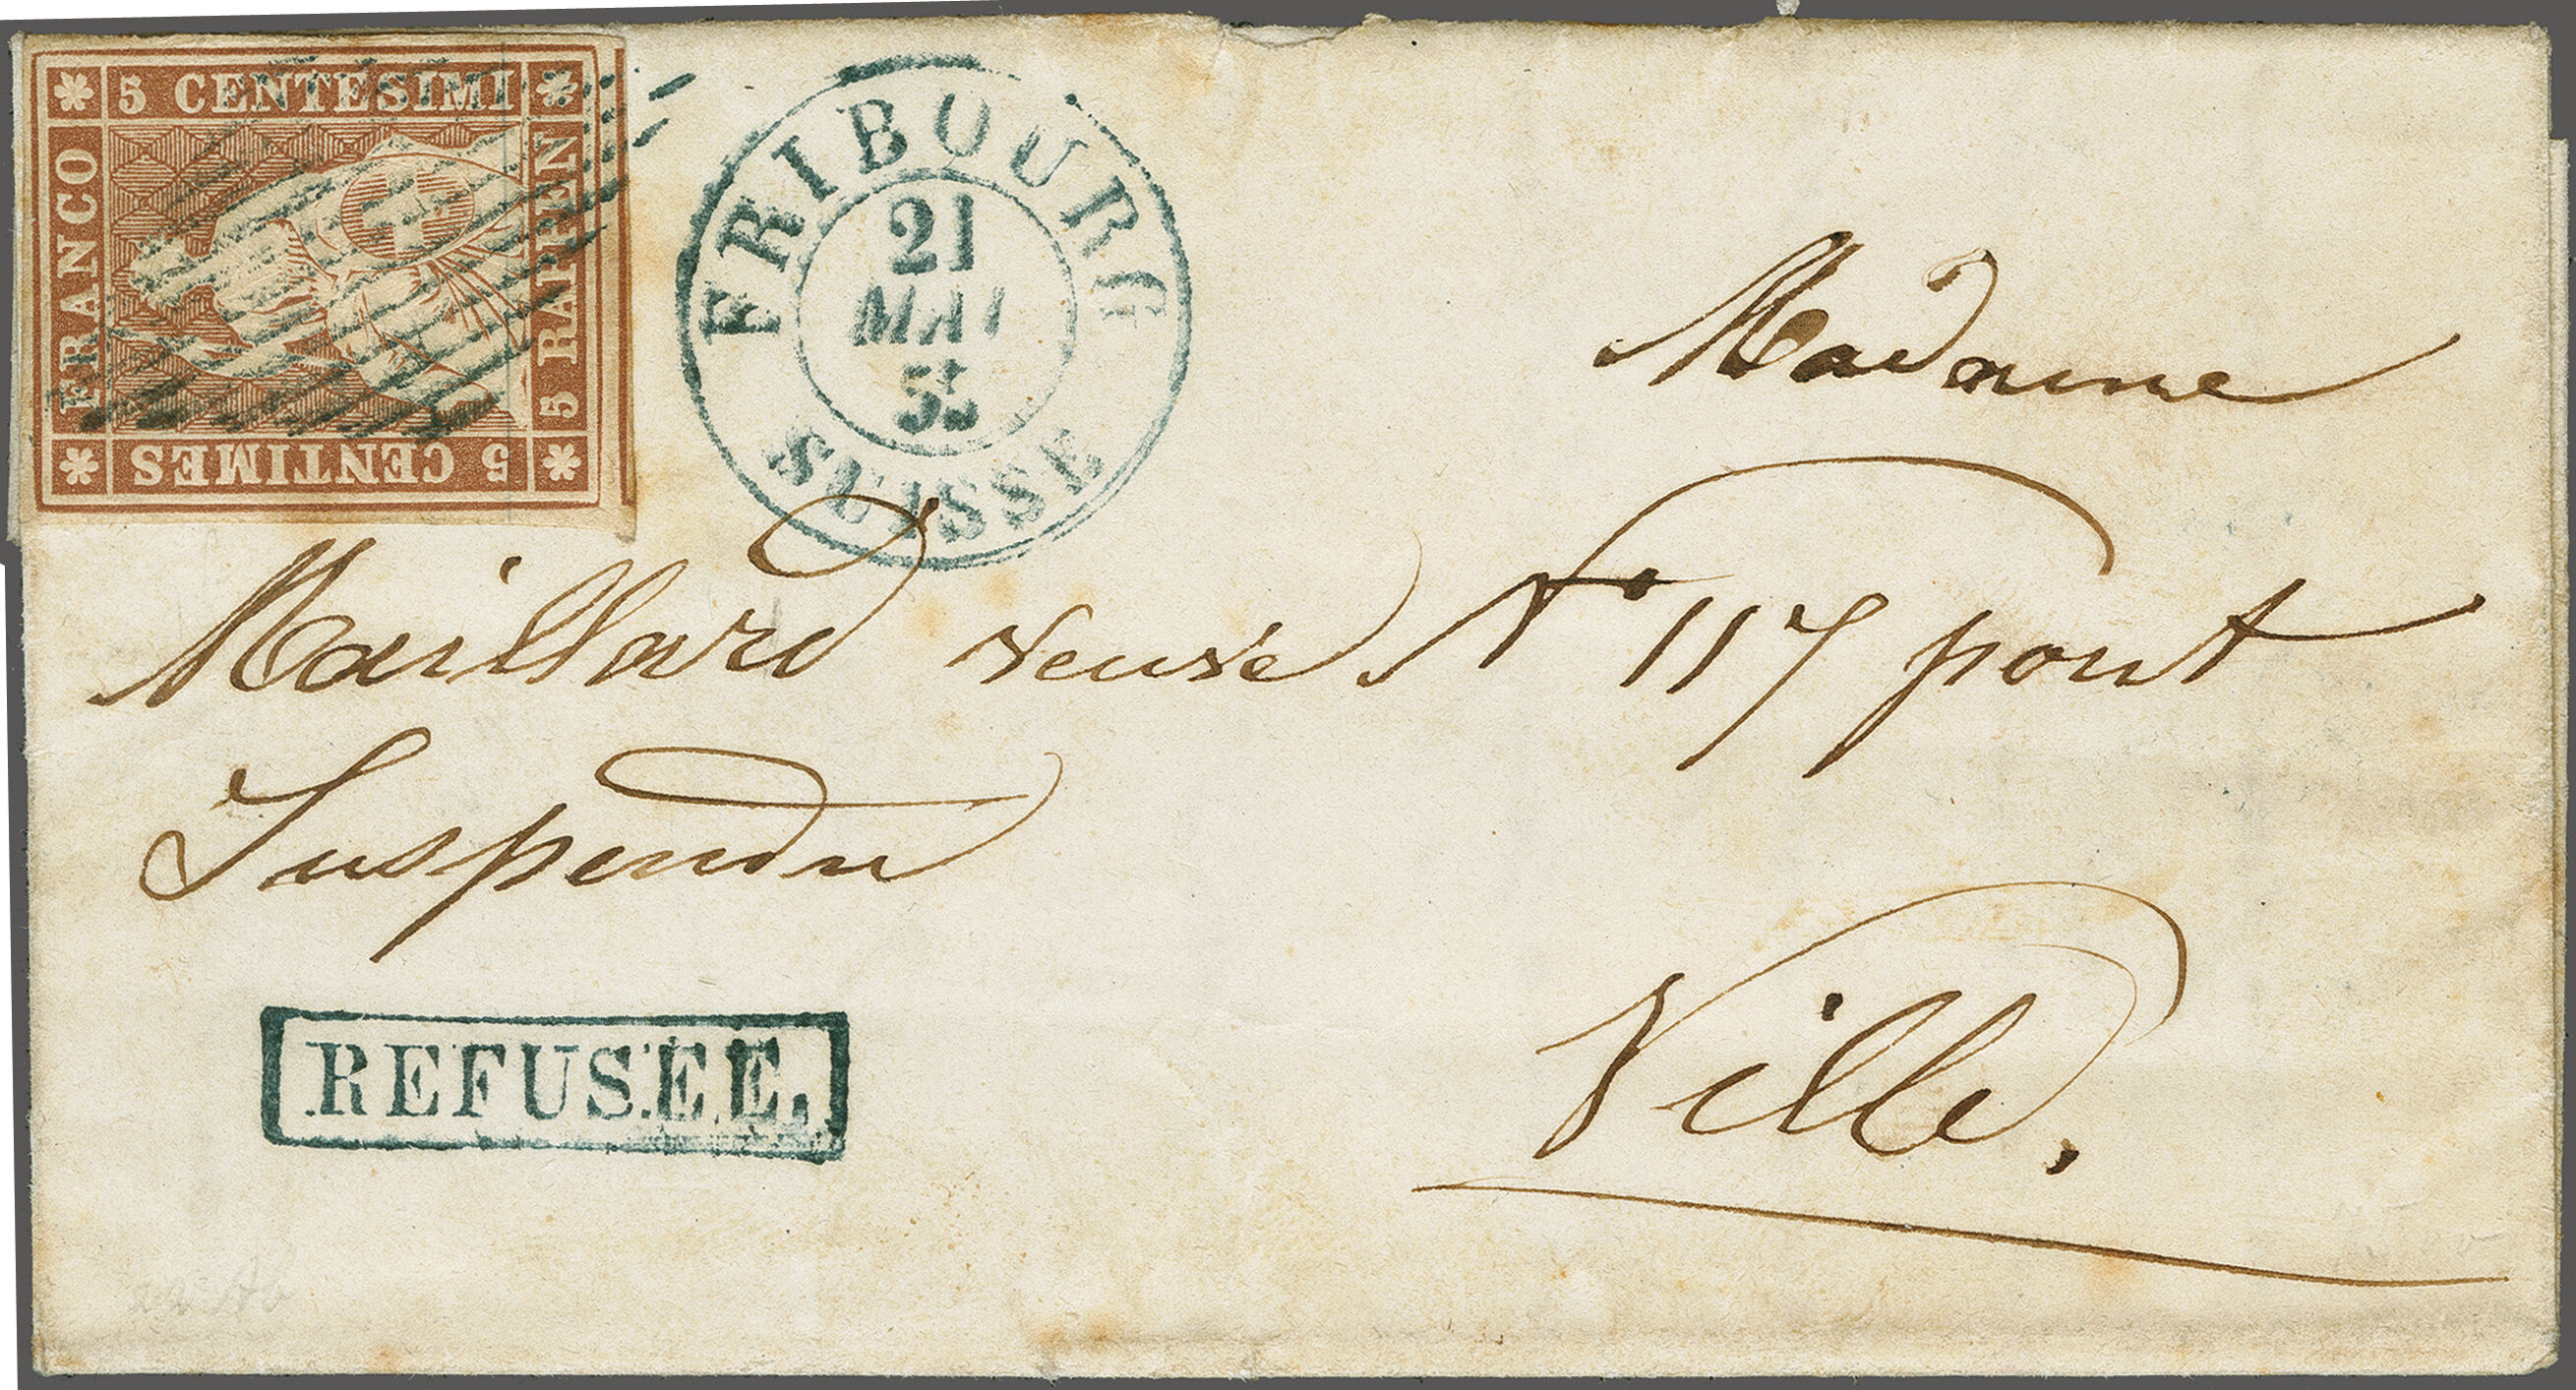 5 CENTESIMI
FRANCO
5 RAPPEN
5 CENTIMES
FRIBOURG
21
MAI
55
SUISSE
Madame
Maillard veuve N° 117 pont
Suspendu
Ville.
REFUSEE.